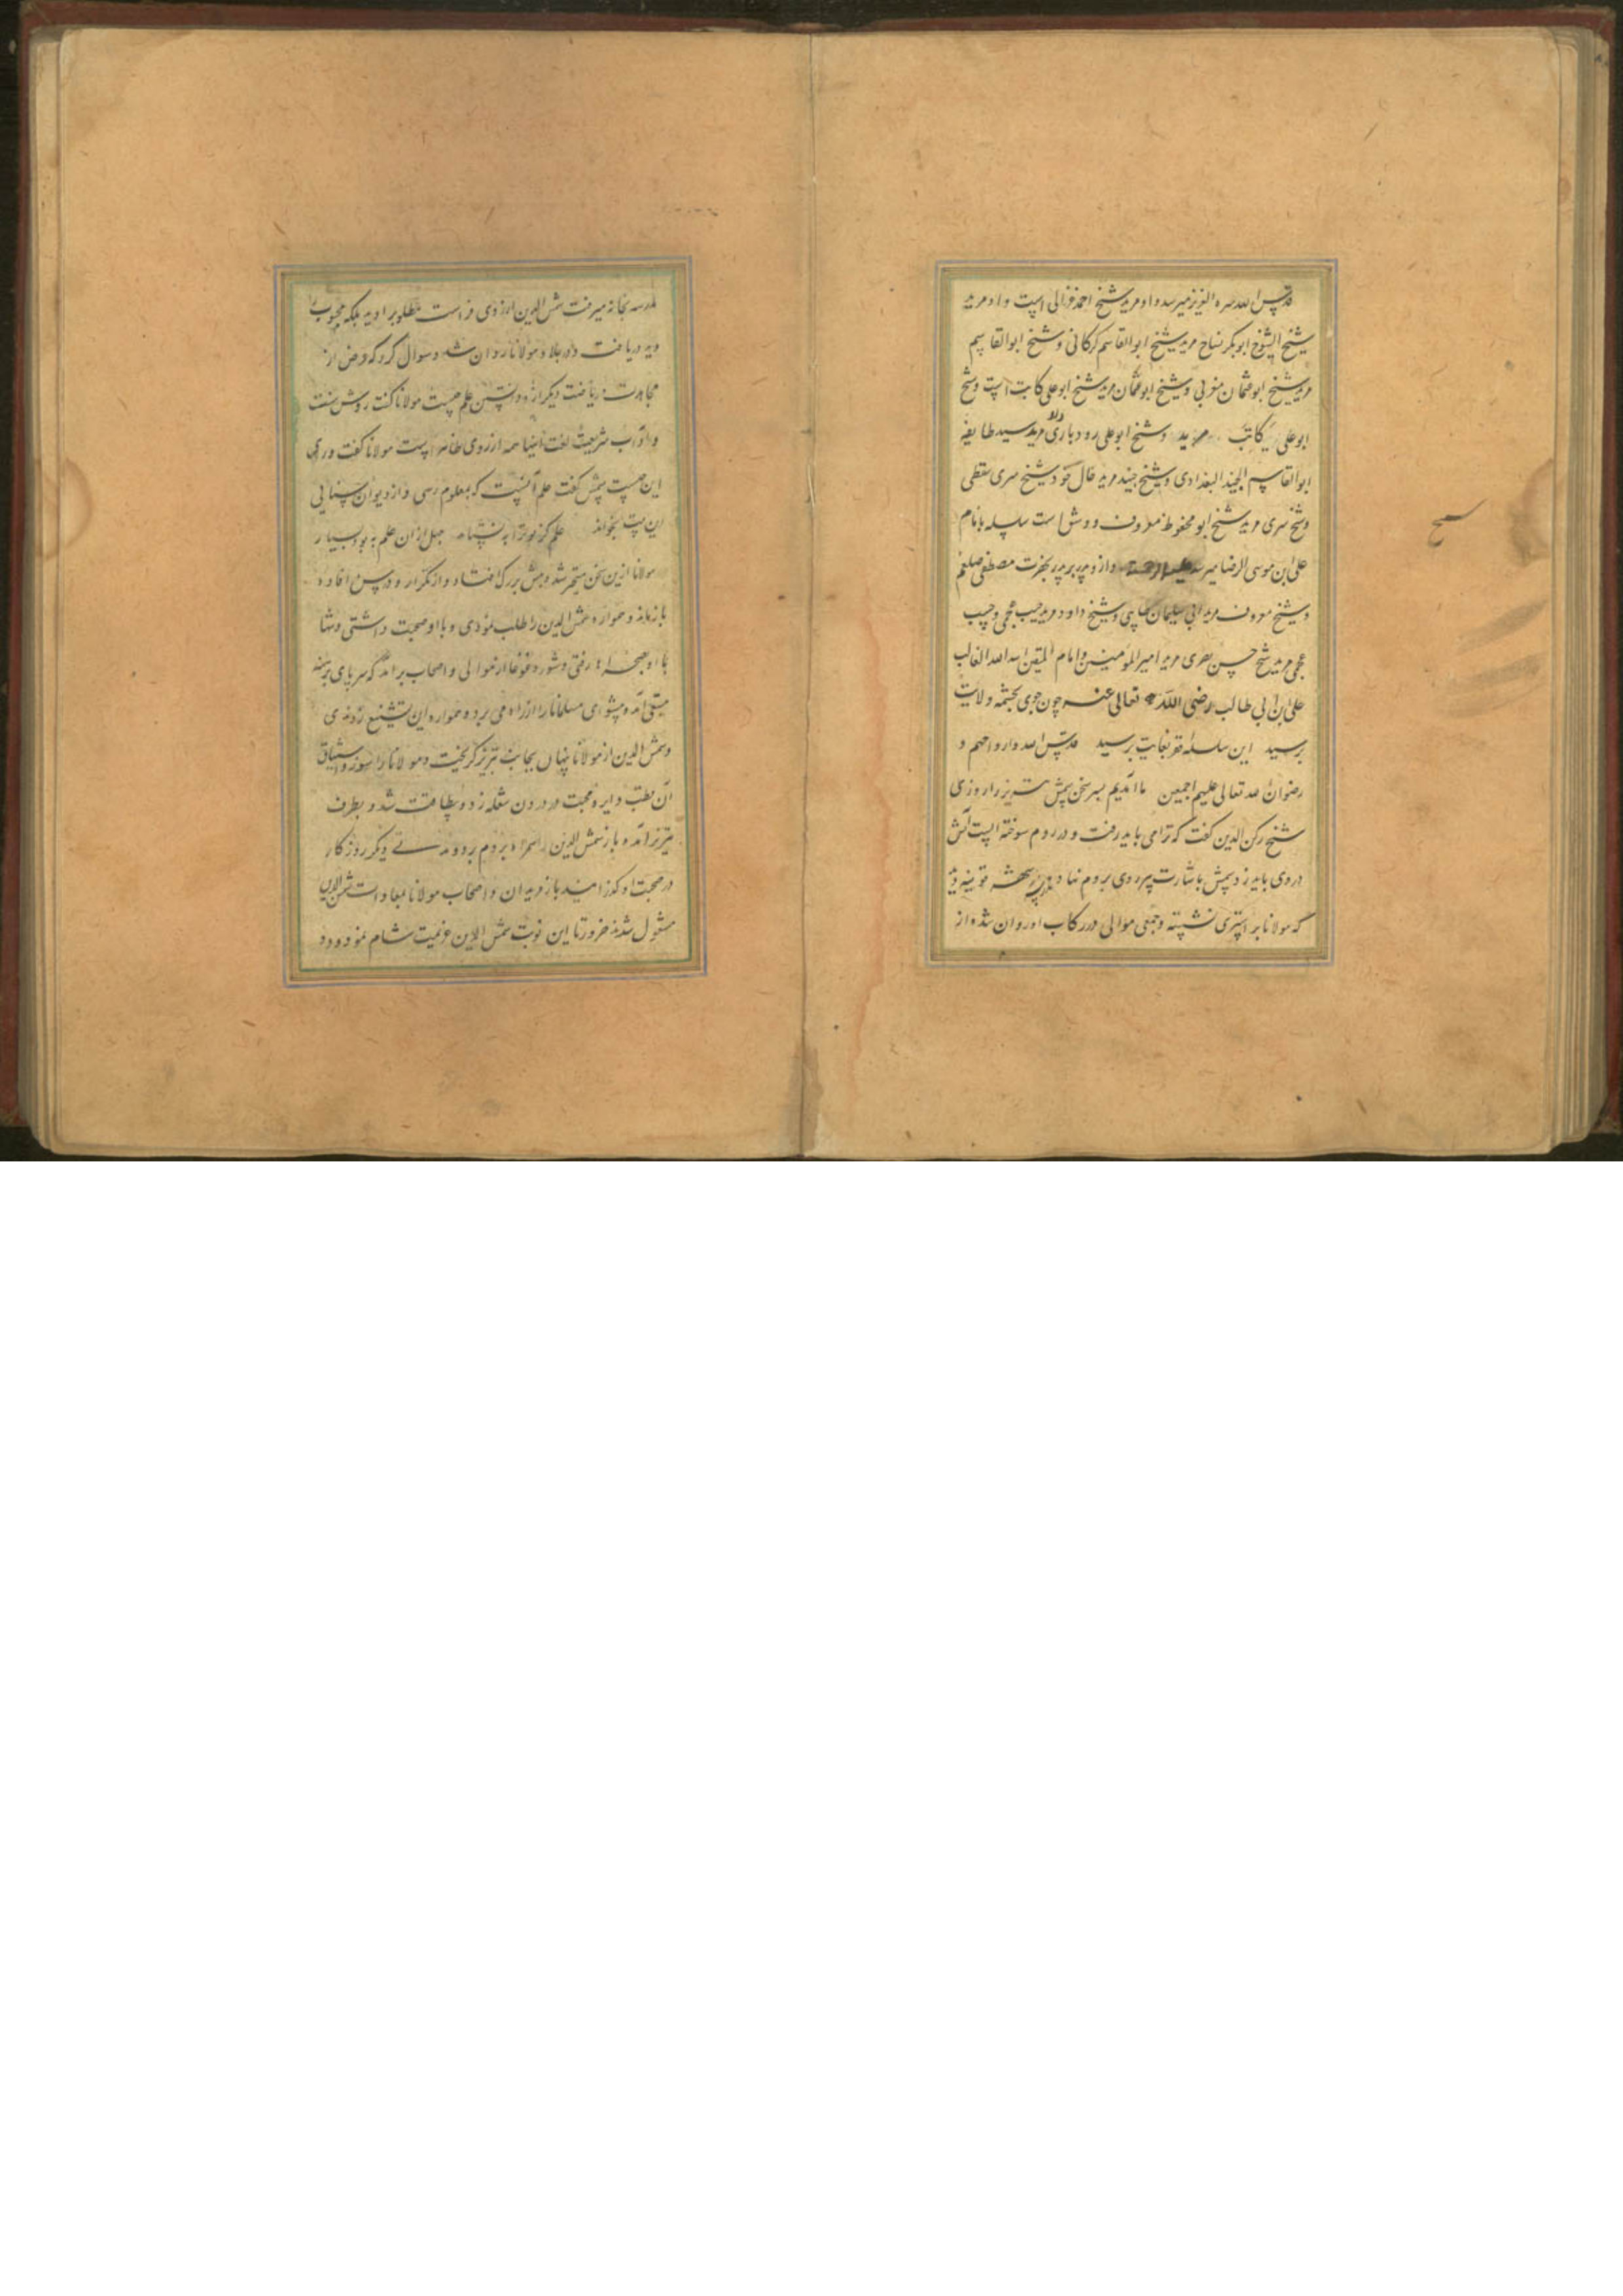 قدس الله سره العزیز میرسد و او مرید شیخ احمد غزالی است و او مرید
شیخ الشیوخ ابوبکر نساج مرید شیخ ابوالقاسم کرکانی و شیخ ابوالقاسم
مرید شیخ ابوعثمان مغربی و شیخ ابوعثمان مرید شیخ ابوعلی کاتب است و شیخ
ابوعلی کاتب مرید و شیخ ابوعلی رودباری و او مرید سید طایفه
ابوالقاسم الجنید البغدادی و شیخ جنید مرید خال خود شیخ سری سقطی
و شیخ سری مرید شیخ ابو محفوظ معروف و روش است سلسله بامام
علی ابن موسی الرضا میرسد علیه الرحمه و از و پدر بر پدر بحضرت مصطفی صلعم
و شیخ معروف مرید ابی سلیمان طایی و شیخ داود مرید حبیب عجمی و حبیب
عجمی مرید شیخ حسن بصری مرید امیر المومنین و امام المتقین اسد الله الغالب
علی بن ابی طالب رضی الله تعالی عنه چون جوی بچشمه ولایت
برسید این سلسله فقر بغایت برسید قدس الله ارواحهم و
رضوان الله تعالی علیهم اجمعین ما آمدیم بسر سخن شمس تبریز را روزی
شیخ رکن الدین گفت که ترا می باید رفت و در روم سوخته ایست آتش
در وی باید زد شمس باشارت پیر روی بروم نهاد در شهر قونیه دید
که مولانا بر استری نشسته و جمعی موالی در رکاب او روان شده از
مدرسه بخانه میرفت شمس الدین از روی فراست مطلوب را دید بلکه محبوب را
دید دریافت و در جلاو مولانا روان شد و سوال کرد که غرض از
مجاهدت و ریاضت و تکرار و دانستن علم چیست مولانا گفت روش سنت
و آداب شریعت گفت اینها همه از روی ظاهر است مولانا گفت ورای
این چیست شمس گفت علم آنست که بمعلوم رسی و از دیوان سنایی
این بیت بخواند علم کز تو ترا بنستاند جهل از آن علم به بود بسیار
مولانا ازین سخن متحیر شد و پیش بزرگ افتاد و از تکرار و درس افاده
بازماند و همواره شمس الدین را طلب نمودی و با او صحبت داشتی و تنها
با او بصحرا رفتی و شور و غوغا از موالی و اصحاب برآمد که سر پای برهنه
مبتدی آمد و پیشوای مسلمانان را از راه می برد و همواره این تشنیع زدندی
و شمس الدین از مولانا پنهان بجانب تبریز گریخت و مولانا را سوز و اشتیاق
آن قطب دایره محبت در درون شعله زد و بیطاقت شد و بطرف
تبریز آمد و باز شمس الدین را همراه بروم برد و مدتی دیگر روزگار
در صحبت او گذرانید باز مریدان و اصحاب مولانا بمعادات شمس الدین
مشغول شدند ضرورتا این نوبت شمس الدین عزیمت شام نمود و دو